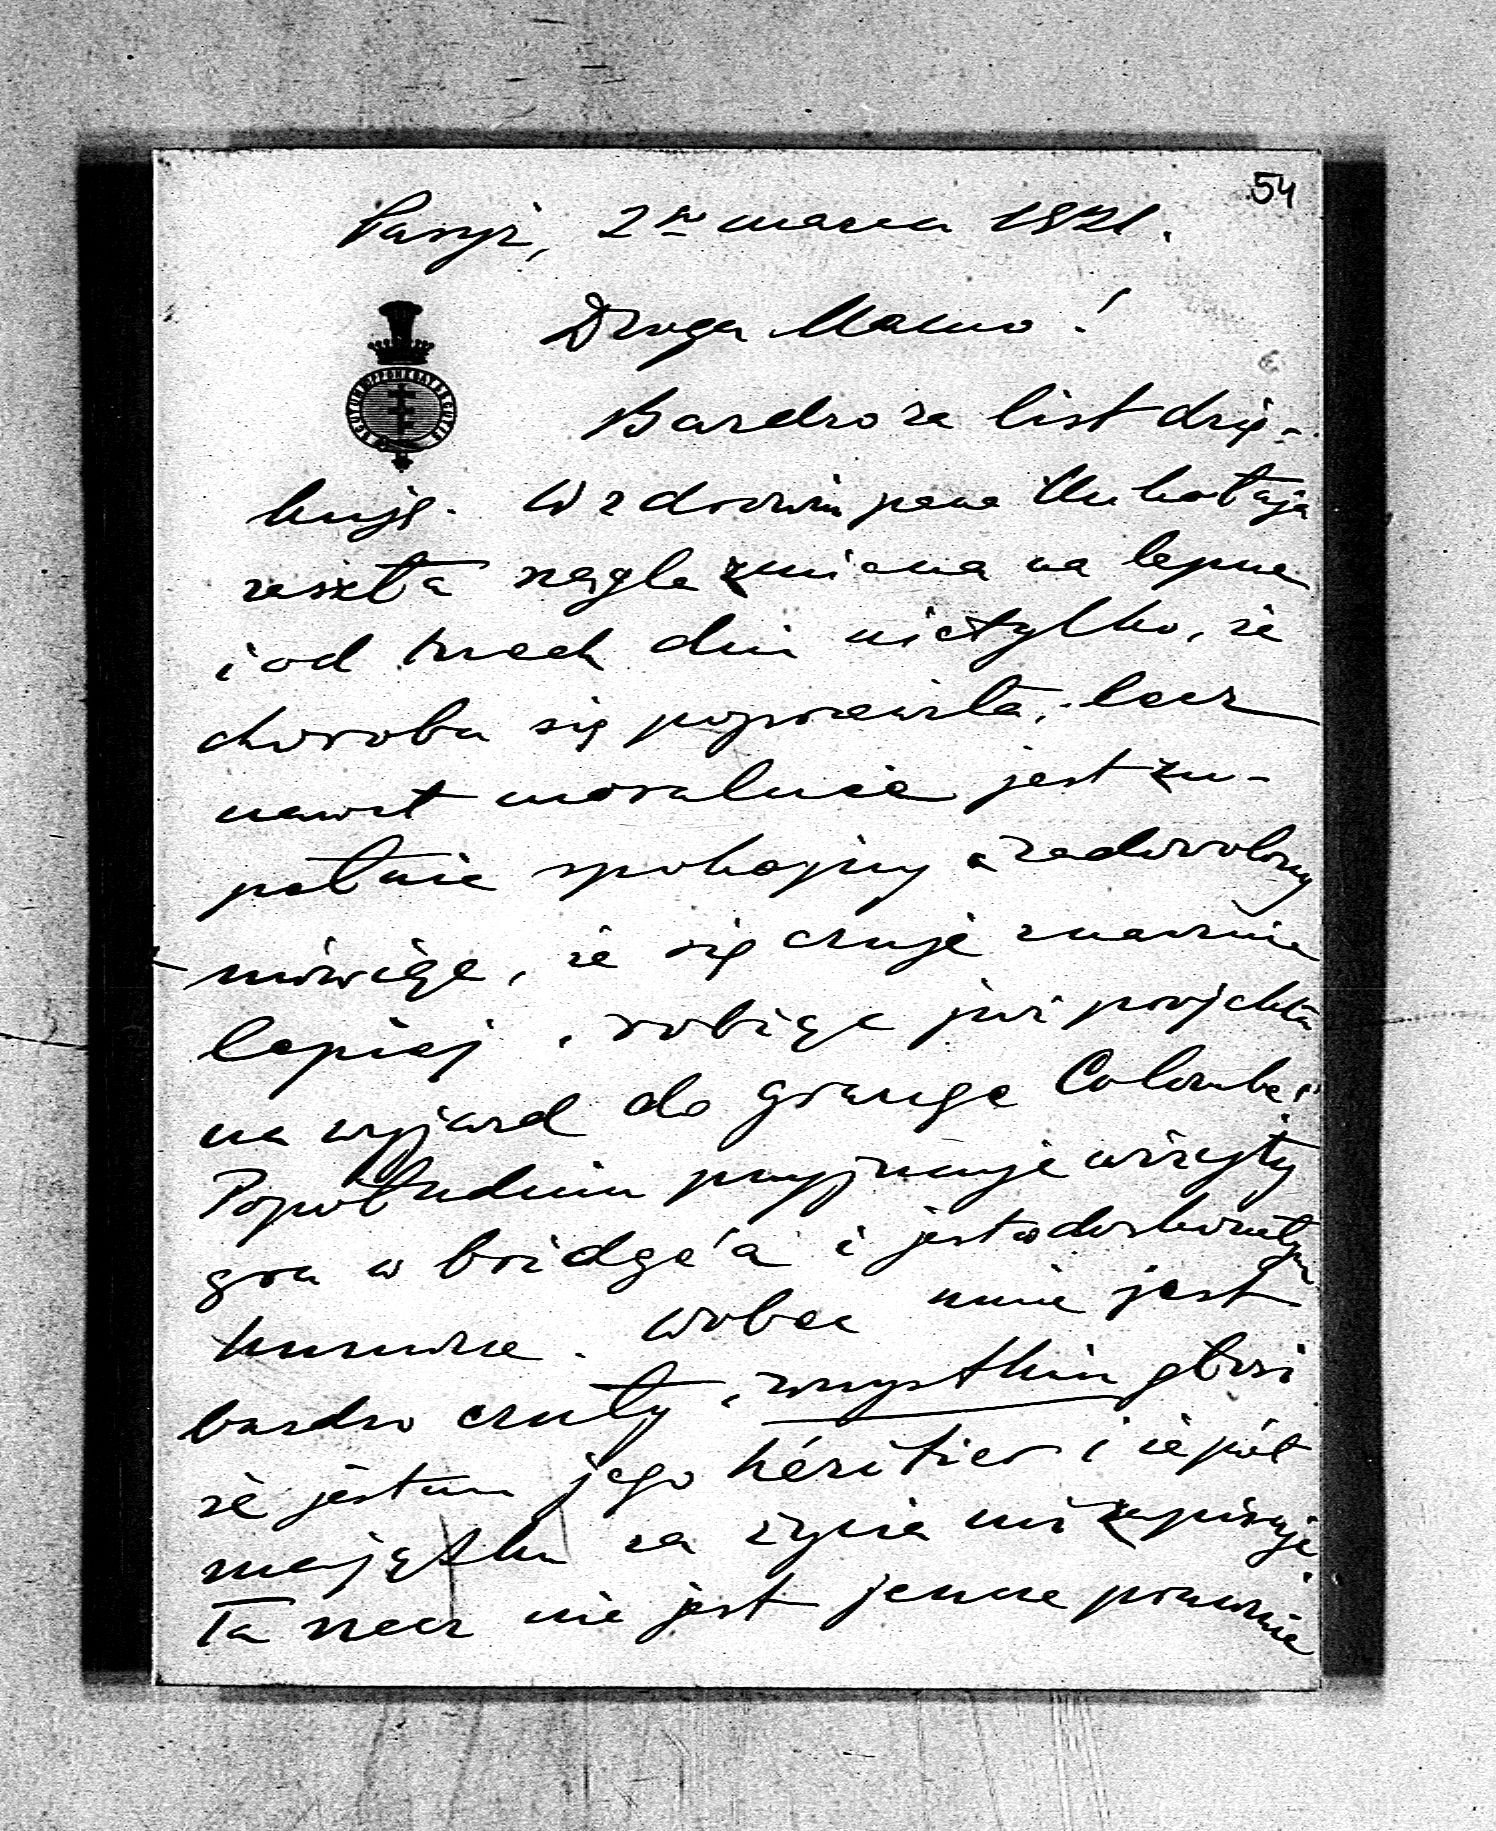 54
Paryż, 2go marca 1921.
Droga Mamo!
Bardzo za list dzię-
kuję. W zdrowiu pana Mikołaja
zaszła nagle zmiana na lepsze
i od trzech dni nietylko, że
choroba się poprawiła, lecz
nawet moralnie jest zu-
pełnie spokojny i zadowolony
mówiąc, że się czuje znacznie
lepiej, robiąc już projekta
na wyjazd do grange Colombe!
Popołudniu przyjmuje wizyty
gra w bridge'a i jest w doskonałym
humorze. Wobec mnie jest
bardzo czuły, wszystkim głosi
że jestem jego héritier i że pół
majątku za życia mi zapisuje.
Ta rzecz nie jest jeszcze prawnie